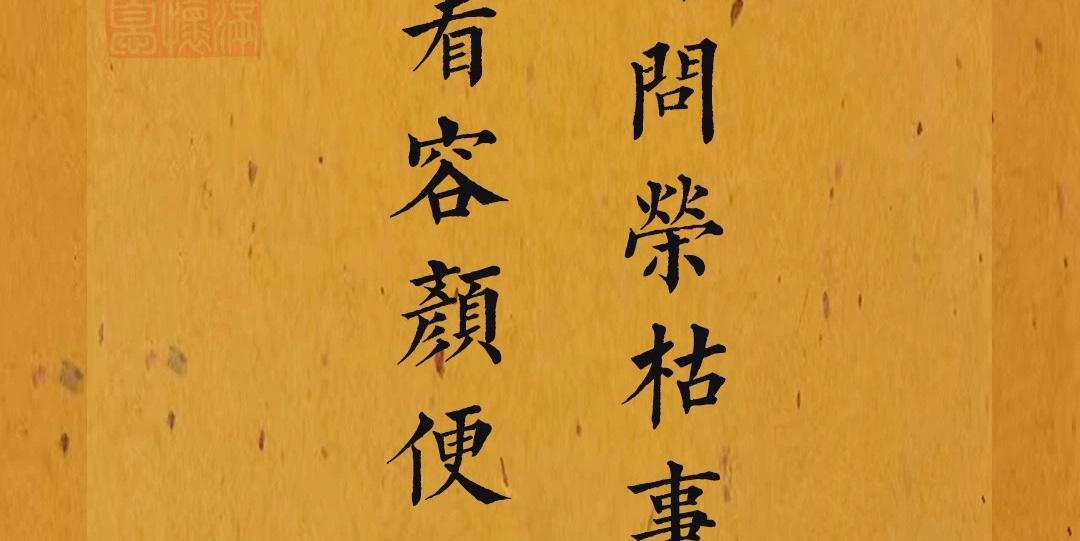 問榮枯事
看容顏便